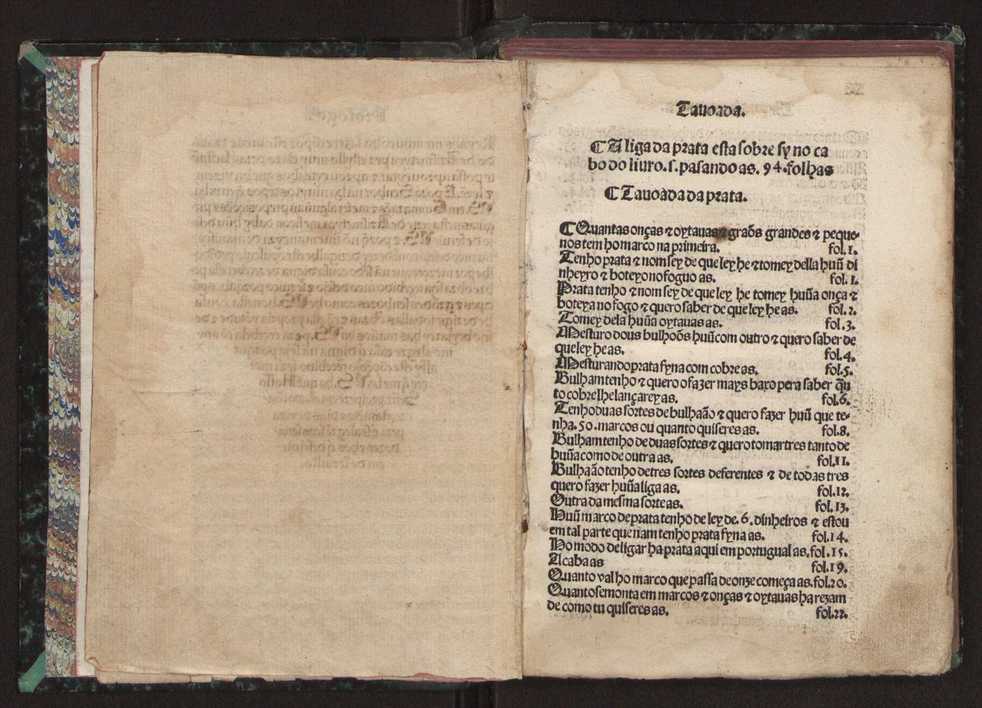 Tauoada.
¶ A liga da prata esta sobre sy no ca
bo do liuro. s. pasando as. 94. folhas
¶ Tauoada da prata.
¶ Quantas onças & oytauas & graõs grandes & peque-
nos tem ho marco na primeira. fol. 1.
Tenho prata & nom sey de que ley he & tomey della huũ di
nheyro & boteyo no foguo as. fol. 1.
Prata tenho & nom sey de que ley he tomey huũa onça &
boteya no fogo & quero saber de que ley he as. fol. 2.
Tomey dela huũa oytaua as. fol. 3.
Mesturo dous bulhoõs huũ com outro & quero saber de
que ley he as. fol. 4.
Mesturando prata fyna com cobre as. fol. 5.
Bulham tenho & quero o fazer mays baxo pera saber q̃n
to cobre lhe lançarey as. fol. 6.
Tenho duas sortes de bulhaão & quero fazer huũ que te-
nha. 50. marcos ou quanto quiseres as. fol. 8.
Bulham tenho de duas sortes & quero tomar tres tanto de
huũa como de outra as. fol. 11.
Bulhaão tenho de tres sortes deferentes & de todas tres
quero fazer huũa liga as. fol. 12.
Outra da mesma sorte as. fol. 13.
Huũ marco de prata tenho de ley de. 6. dinheiros & estou
em tal parte que nam tenho prata fyna as. fol. 14.
Ho modo de ligar ha prata aqui em portugual as. fol. 15.
Acaba as fol. 19.
Quanto val ho marco que passa de onze começa as. fol. 20.
Quanto se monta em marcos & onças & oytauas ha rezam
de como tu quiseres as. fol. 22.